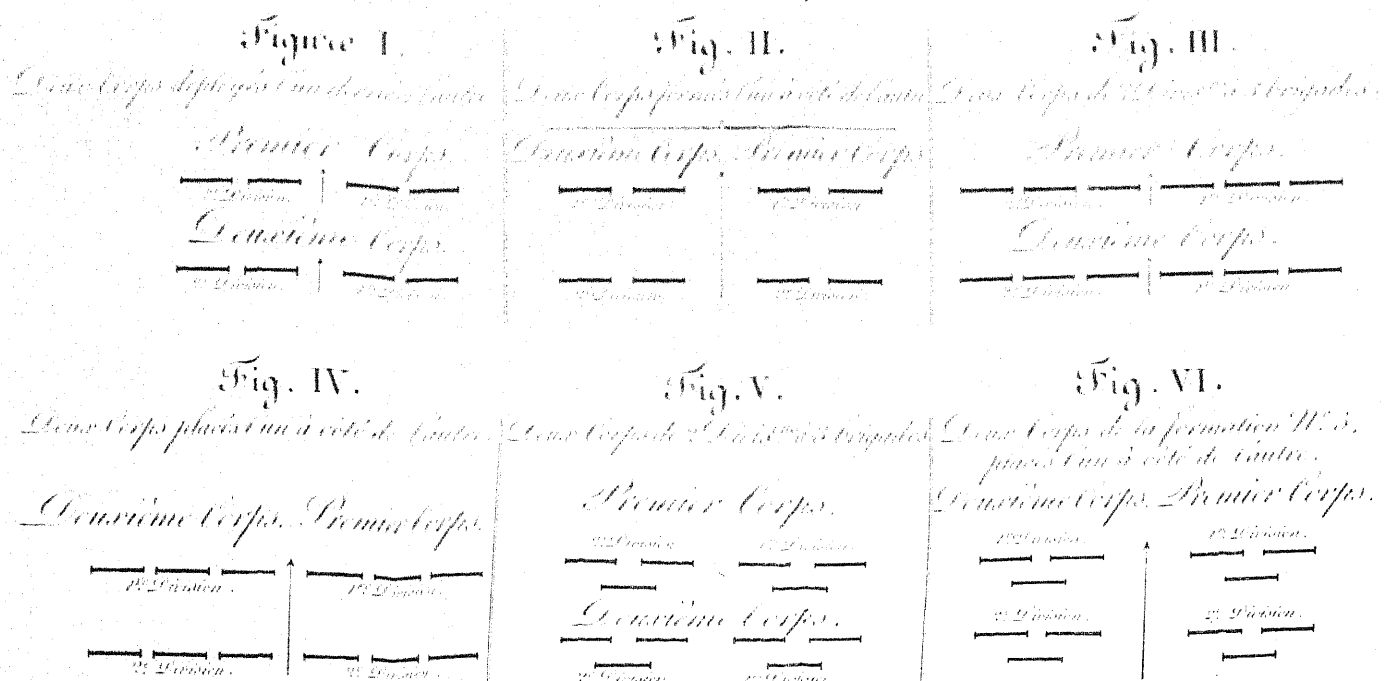 Figure I.
Deux Corps déployés l'un derrière l'autre
Premier Corps.
2e Division. 1re Division.
Deuxième Corps.
2e Division. 1re Division.
Fig. II.
Deux Corps formés l'un à côté de l'autre
Deuxième Corps. Premier Corps
1re Division. 1re Division
2e Division. 2e Division.
Fig. III.
Deux Corps de 2 Divis.ons à 3 brigades.
Premier Corps.
2e Division. 1re Division.
Deuxième Corps.
2e Division. 1re Division
Fig. IV.
Deux Corps placés l'un à côté de l'autre.
Deuxième Corps. Premier Corps.
1re Division. 1re Division.
2e Division. 2e Division.
Fig. V.
Deux Corps de 2 Divis.ons à 3 brigades
Premier Corps.
2e Division 1re Division.
Deuxième Corps.
2e Division 1re Division
Fig. VI.
Deux Corps de la formation No. 5,
placés l'un à côté de l'autre.
Deuxième Corps. Premier Corps.
1re Division. 1re Division.
2e Division. 2e Division.